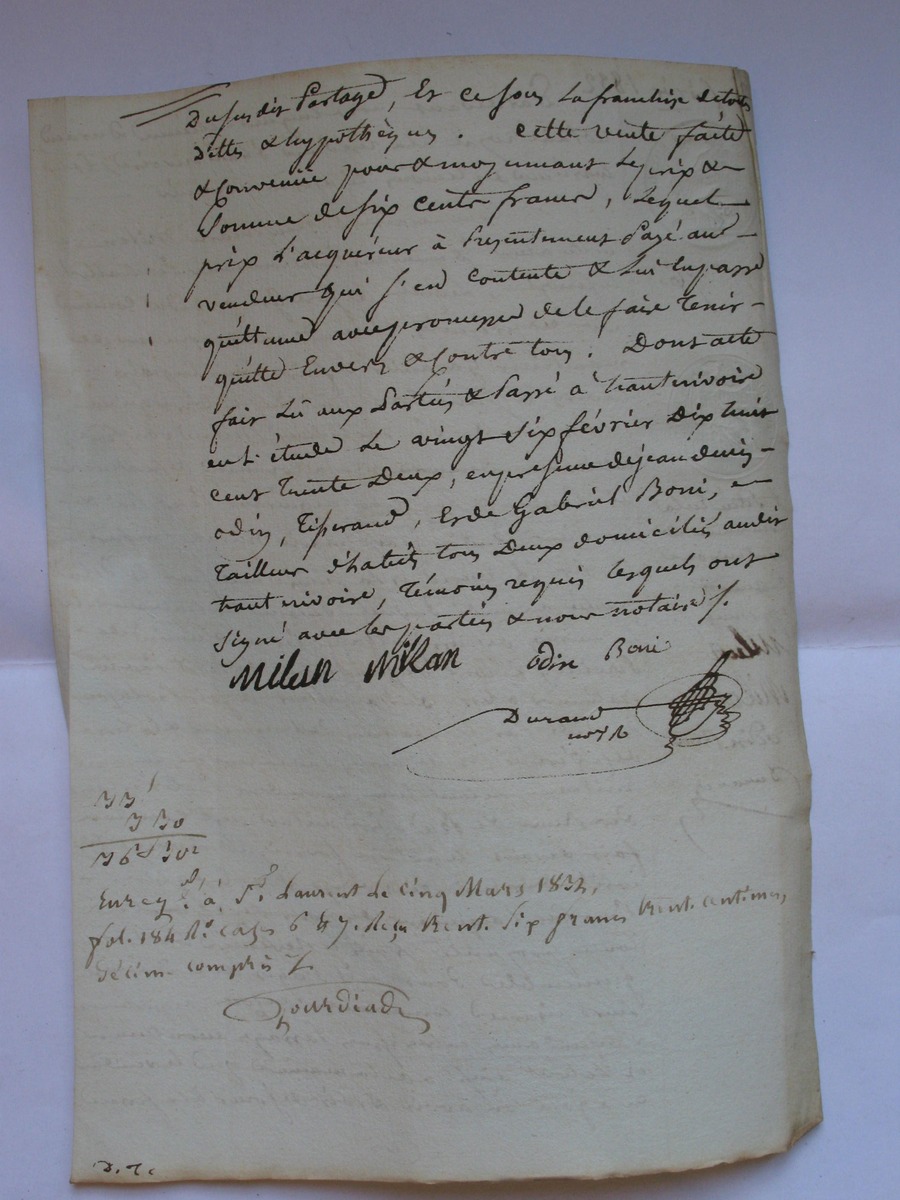 Du susdit Partage, Et ce sous La franchise de toutes
D'ettes & hypothèques. Cette vente faite
& Convenüe pour & moyennant Le prix &
Somme de six cents francs, Lequel
prix L'acquéreur à Présentement Payé au
vendeur qui s'en Contente & Lui en passe
quittance avec promesse de le faire tenir
quitte Envers & Contre tous. Dont acte
fait Lû aux Parties & Passé à hauterivoire
en l'étude Le vingt Six février Dix huit
cent trente Deux, en présence de jean denis
odin, Tisserand, Et de Gabriel Boni,
Tailleur d'habits tous Deux domiciliés audit
hauterivoire, Témoins requis lesquels ont
Signé avec les parties & nous notaire /.
Milan Milan odin Boni
Durand
no.re
33
3 30
36 f 30 c
Enreg.é à St. Laurent Le cinq Mars 1832,
fol. 184 R.o cases 6 & 7. Reçu trent. Six francs trent. centimes,
Décim. compris /.
D. T.